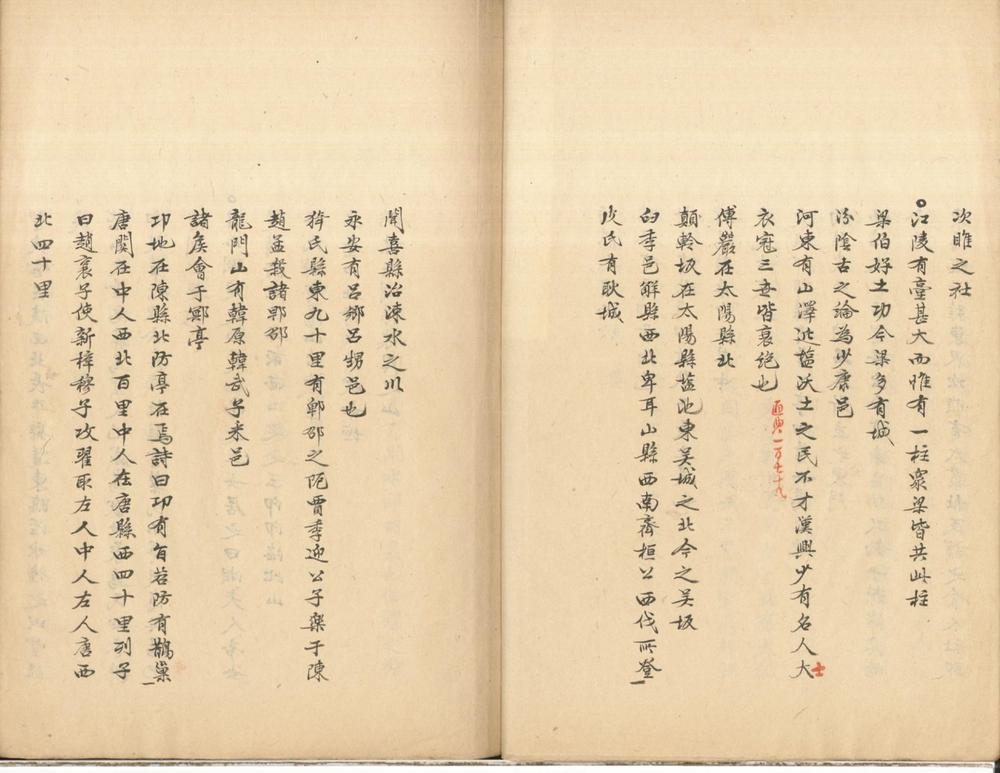 次睢之社
江陵有臺甚大而惟有一柱眾梁皆共此柱
梁伯好土功今梁多有城
汾陰古之論為少康邑
河東有山澤近塩沃土之民不才漢興少有名人大
士
衣冠三世皆衰絕也
傅巖在太陽縣北
顛軨坂在太陽縣塩池東吳城之北今之吳坂
臼季邑解縣西北卑耳山縣西南齊桓公西伐所登
皮氏有耿城
聞喜縣治涑水之川
永安有呂鄉呂甥邑也
猗氏縣東九十里有郫邵之阨賈季迎公子樂于陳
趙孟殺諸郫邵
龍門山有韓原韓武子米邑
諸侯會于鄍亭
邛地在陳縣北防亭在焉詩曰邛有旨苕防有鵲巢
唐関在中人西北百里中人在唐縣西四十里列子
曰趙襄子使新稚穆子攻翟取左人中人左人唐西
北四十里